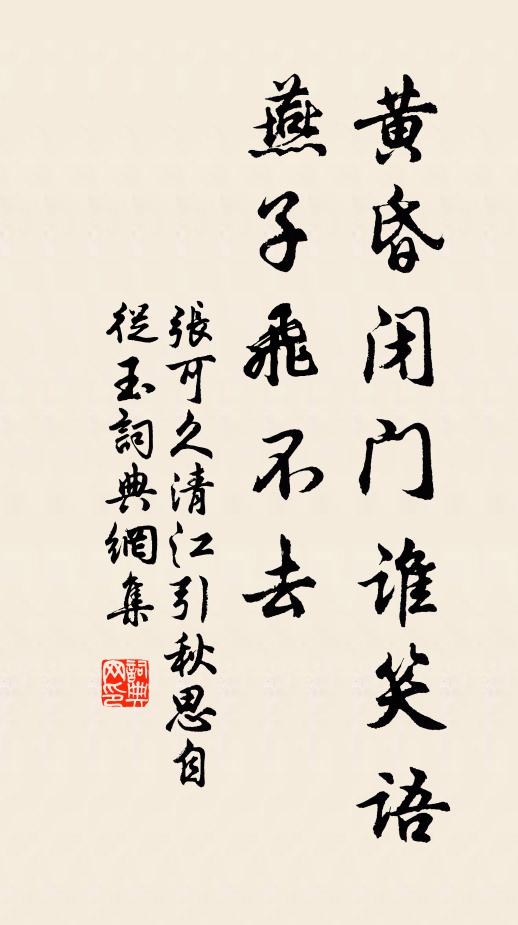 黄昏闭门谁笑語
燕子飛不去
張可久清江引秋思自
從玉詞典網集
詞典
网印